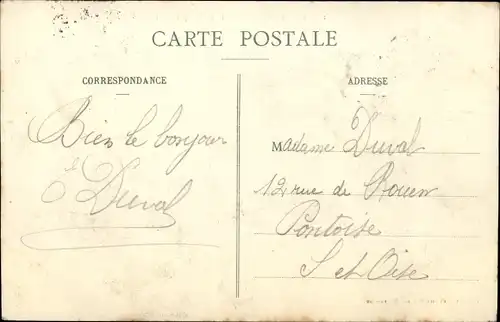 CARTE POSTALE
CORRESPONDANCE
Bien le bonjour
E Duval
ADRESSE
Madame Duval
12 rue de Rouen
Pontoise
S et Oise